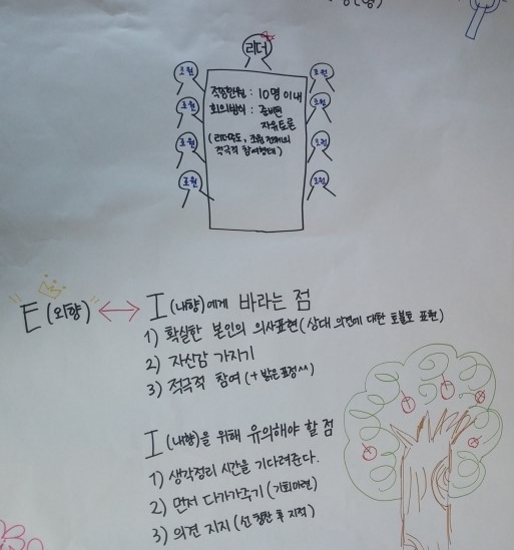 리더
조원 조원
조원 조원
조원 조원
조원 조원
적정인원 : 10명 이내
회의방식 : 준비된
자유토론
(리더주도, 조원 전체의
적극적 참여형태)
E (외향) ↔ I (내향)에게 바라는 점
1) 확실한 본인의 의사표현(상대 의견에 대한 호불호 표현)
2) 자신감 가지기
3) 적극적 참여 (+ 밝은 표정^^)
I (내향)을 위해 유의해야 할 점
1) 생각정리 시간을 기다려준다.
2) 먼저 다가가주기 (기회마련)
3) 의견 지지 (선 칭찬 후 지적)